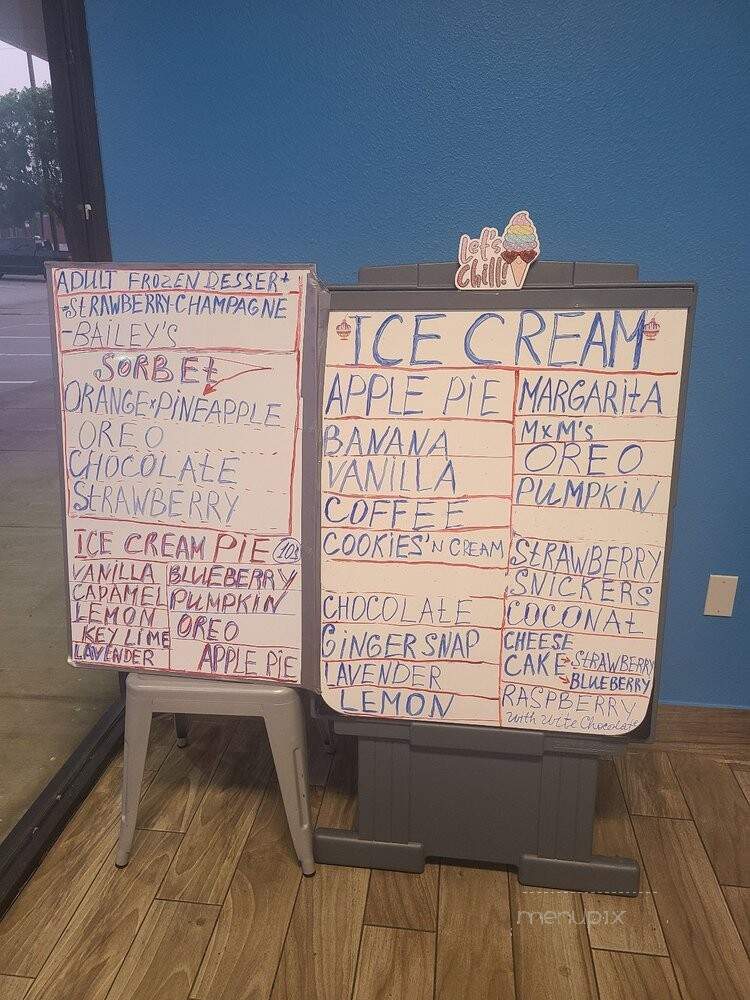 ADULT FROZEN DESSERt
-StRAWBERRY-CHAMPAGNE
-BAILEY'S
SORBEt
ORANGE*PiNEAPPLE
OREO
CHOCOLAtE
StRAWBERRY
ICE CREAM PiE 10$
VANILLA BLUEBERRY
CARAMEL PUMPKiN
LEMON OREO
KEY LIME
LAVENDER APPLE PiE
Let's
Chill!
ICE CREAM
APPLE PiE MARGARitA
M&M's
BANANA OREO
VANILLA PUMPKiN
COFFEE
COOKIES'N CREAM StRAWBERRY
SNICKERS
CHOCOLAtE COCONAt
GiNGER SNAP CHEESE
CAKE StRAWBERRY
LAVENDER BLUEBERRY
LEMON RASPBERRY
With Wite Chocolate
menupix